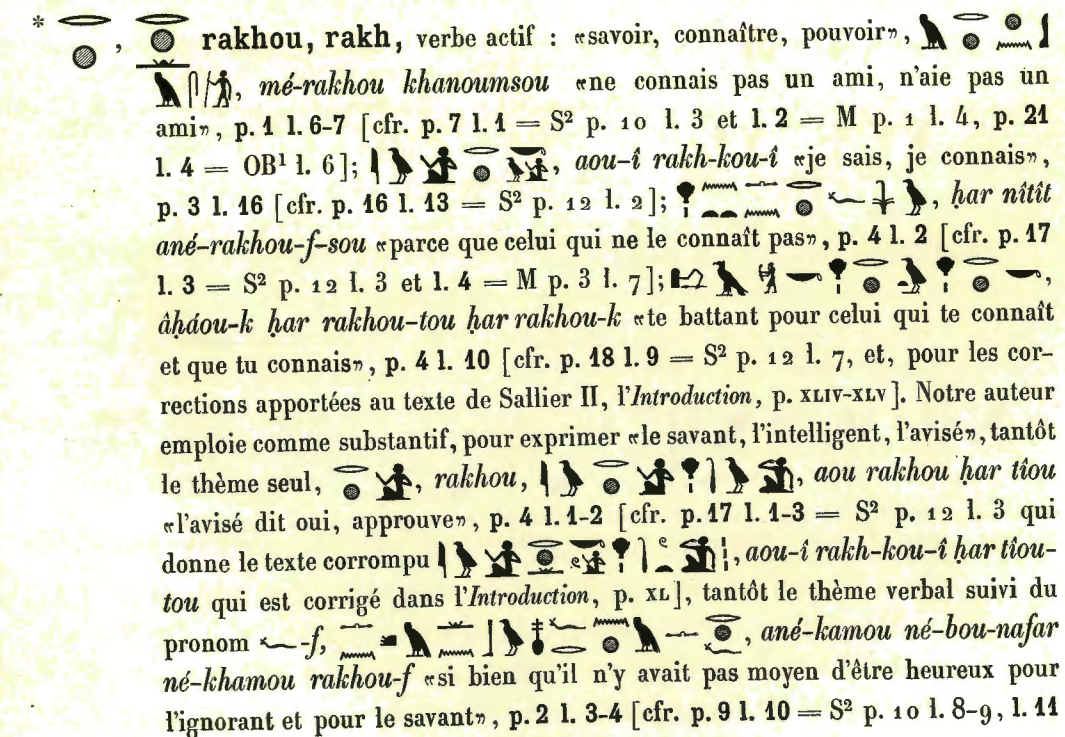 * , rakhou, rakh, verbe actif : «savoir, connaître, pouvoir»,
, mé-rakhou khanoumsou «ne connais pas un ami, n'aie pas un
ami», p. 1 l. 6-7 [cfr. p. 7 l. 1 = S² p. 10 l. 3 et l. 2 = M p. 1 l. 4, p. 21
l. 4 = OB¹ l. 6]; , aou-î rakh-kou-î «je sais, je connais»,
p. 3 l. 16 [cfr. p. 16 l. 13 = S² p. 12 l. 2]; , ḥar nîtît
ané-rakhou-f-sou «parce que celui qui ne le connaît pas», p. 4 l. 2 [cfr. p. 17
l. 3 = S² p. 12 l. 3 et l. 4 = M p. 3 l. 7]; ,
âḥáou-k ḥar rakhou-tou ḥar rakhou-k «te battant pour celui qui te connaît
et que tu connais», p. 4 l. 10 [cfr. p. 18 l. 9 = S² p. 12 l. 7, et, pour les cor-
rections apportées au texte de Sallier II, l'Introduction, p. XLIV-XLV]. Notre auteur
emploie comme substantif, pour exprimer «le savant, l'intelligent, l'avisé», tantôt
le thème seul, , rakhou, , aou rakhou ḥar tîou
«l'avisé dit oui, approuve», p. 4 l. 1-2 [cfr. p. 17 l. 1-3 = S² p. 12 l. 3 qui
donne le texte corrompu , aou-î rakh-kou-î ḥar tîou-
tou qui est corrigé dans l'Introduction, p. XL], tantôt le thème verbal suivi du
pronom -f, , ané-kamou né-bou-nafar
né-khamou rakhou-f «si bien qu'il n'y avait pas moyen d'être heureux pour
l'ignorant et pour le savant», p. 2 l. 3-4 [cfr. p. 9 l. 10 = S² p. 10 l. 8-9, l. 11